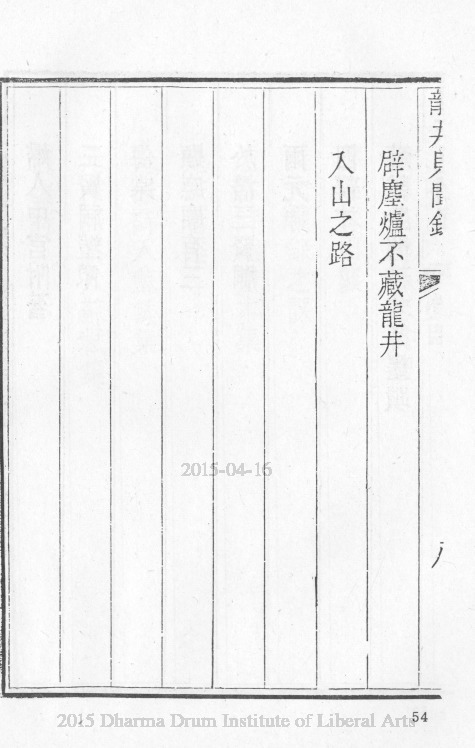 龍井見聞錄
辟塵爐不藏龍井
入山之路
2015-04-16
54
2015 Dharma Drum Institute of Liberal Arts